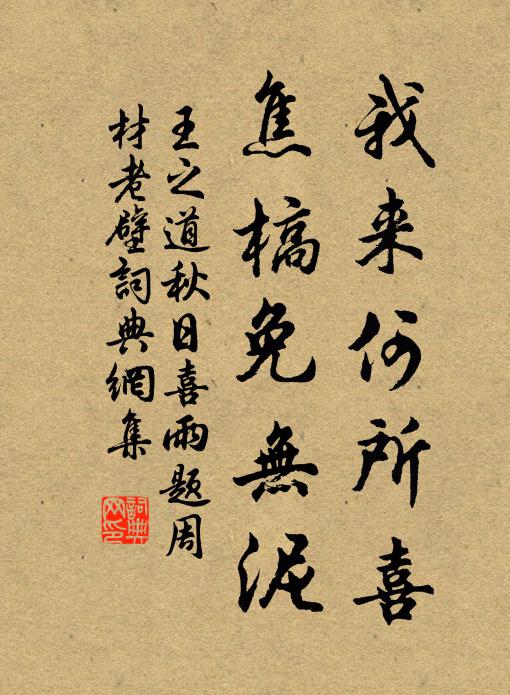 我来何所喜
焦槁免無泥
王之道秋日喜雨题周
材老壁詞典網集
詞典
网印